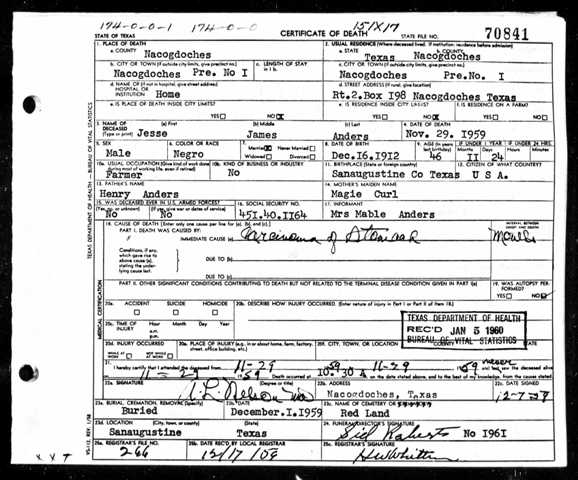 174-0-0-1 174-0-0 15/X/17
STATE OF TEXAS CERTIFICATE OF DEATH STATE FILE NO. 70841
1. PLACE OF DEATH
a. COUNTY Nacogdoches
2. USUAL RESIDENCE (Where deceased lived. If institution: residence before admission)
a. STATE Texas b. COUNTY Nacogdoches
b. CITY OR TOWN (If outside city limits, give precinct no.) Nacogdoches Pre. No I
c. LENGTH OF STAY in 1b.
c. CITY OR TOWN (If outside city limits, give precinct no.) Nacogdoches Pre.No. I
d. NAME OF (If not in hospital, give street address) HOSPITAL OR INSTITUTION Home
d. STREET ADDRESS (If rural, give location) Rt.2.Box I98 Nacogdoches Texas
e. IS PLACE OF DEATH INSIDE CITY LIMITS? YES NO
e. IS RESIDENCE INSIDE CITY LIMITS? YES NO
f. IS RESIDENCE ON A FARM? YES NO
3. NAME OF DECEASED (Type or print) (a) First Jesse (b) Middle James (c) Last Anders
4. DATE OF DEATH Nov. 29. I959
5. SEX Male
6. COLOR OR RACE Negro
7. Married Never Married Widowed Divorced
8. DATE OF BIRTH Dec.I6.I9I2
9. AGE (In years last birthday) 46 IF UNDER 1 YEAR Months II Days 24 IF UNDER 24 HRS. Hours Minutes
10a. USUAL OCCUPATION (Give kind of work done during most of working life, even if retired) Farmer
10b. KIND OF BUSINESS OR INDUSTRY No
11. BIRTHPLACE (State or foreign country) Sanaugustine Co Texas
12. CITIZEN OF WHAT COUNTRY? U S A.
13. FATHER'S NAME Henry Anders
14. MOTHER'S MAIDEN NAME Magie Curl
15. WAS DECEASED EVER IN U.S. ARMED FORCES? (Yes, no, or unknown) No (If yes, give war or dates of service) No
16. SOCIAL SECURITY NO. 45I.40.II64
17. INFORMANT Mrs Mable Anders
18. CAUSE OF DEATH [Enter only one cause per line for (a), (b), and (c).]
INTERVAL BETWEEN ONSET AND DEATH
PART I. DEATH WAS CAUSED BY:
IMMEDIATE CAUSE (a) Carcinoma of Stomach
Conditions, if any, which gave rise to above cause (a), stating the underlying cause last.
DUE TO (b)
DUE TO (c)
PART II. OTHER SIGNIFICANT CONDITIONS CONTRIBUTING TO DEATH BUT NOT RELATED TO THE TERMINAL DISEASE CONDITION GIVEN IN PART I(a)
19. WAS AUTOPSY PERFORMED? YES NO
20a. ACCIDENT SUICIDE HOMICIDE
20b. DESCRIBE HOW INJURY OCCURRED. (Enter nature of injury in Part I or Part II of item 18.)
20c. TIME OF INJURY Hour Month Day Year
a.m.
p.m.
TEXAS DEPARTMENT OF HEALTH
REC'D JAN 5 1960
BUREAU OF VITAL STATISTICS
20d. INJURY OCCURRED WHILE AT WORK NOT WHILE AT WORK
20e. PLACE OF INJURY (e.g., in or about home, farm, factory, street, office building, etc.)
20f. CITY, TOWN, OR LOCATION COUNTY
21. I hereby certify that I attended the deceased from 11-29 59 11-29 59
Death occurred at 10:30 A m. on the date stated above, and to the best of my knowledge, from the causes stated.
22a. SIGNATURE (Degree or title) A. L. Nelson MD
22b. ADDRESS Nacogdoches, Texas
22c. DATE SIGNED 12-7-59
23a. BURIAL, CREMATION, REMOVAL (Specify) Buried
23b. DATE December.I.I959
23c. NAME OF CEMETERY OR CREMATORY Red Land
23d. LOCATION (City, town, or county) (State) Sanaugustine Texas
24. FUNERAL DIRECTOR'S SIGNATURE Sid Roberts No I96I
25a. REGISTRAR'S FILE NO. 266
25b. DATE REC'D BY LOCAL REGISTRAR 12/17/59
25c. REGISTRAR'S SIGNATURE
TEXAS DEPARTMENT OF HEALTH — BUREAU OF VITAL STATISTICS
MEDICAL CERTIFICATION
VS-112 REV. 1/58
x x T